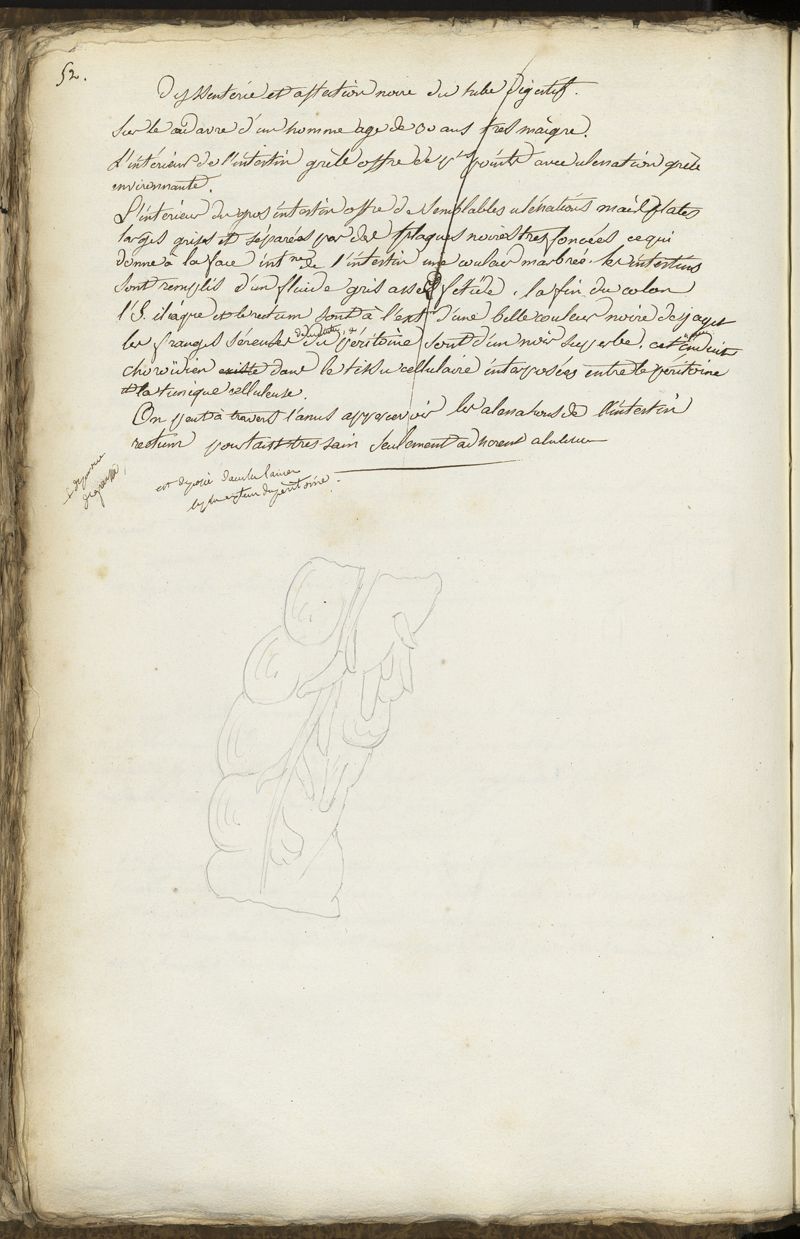 52.
Dyssenterie et affection noire du tube digestif.
Sur le cadavre d'un homme age de 30 ans tres maigre.
L'intérieur de l'intestin grele offre de pts points avec ulceration grele
environnante.
L'interieur du gros intestin offre de semblables ulcérations mais plates
larges grises et séparées par des plaques noires tres foncées ce qui
donne à la face intne de l'intestin une couleur marbrée. les intestins
sont remplis d'un fluide gris assez fetide. la fin du colon
l'S. iliaque et le rectum sont à l'extr d'une belle couleur noire de jayet
les franges séreuses du péritoine sont d'un noir superbe. cet enduit
choroïdien existe dans le tissu cellulaire interposées entre le péritoine
et la tunique celluleuse.
On peut à travers l'anus appercevoir les ulcerations de l'intestin
rectum pourtant tres sain seulement adherent
est deposé dans les lames
du péritoine.